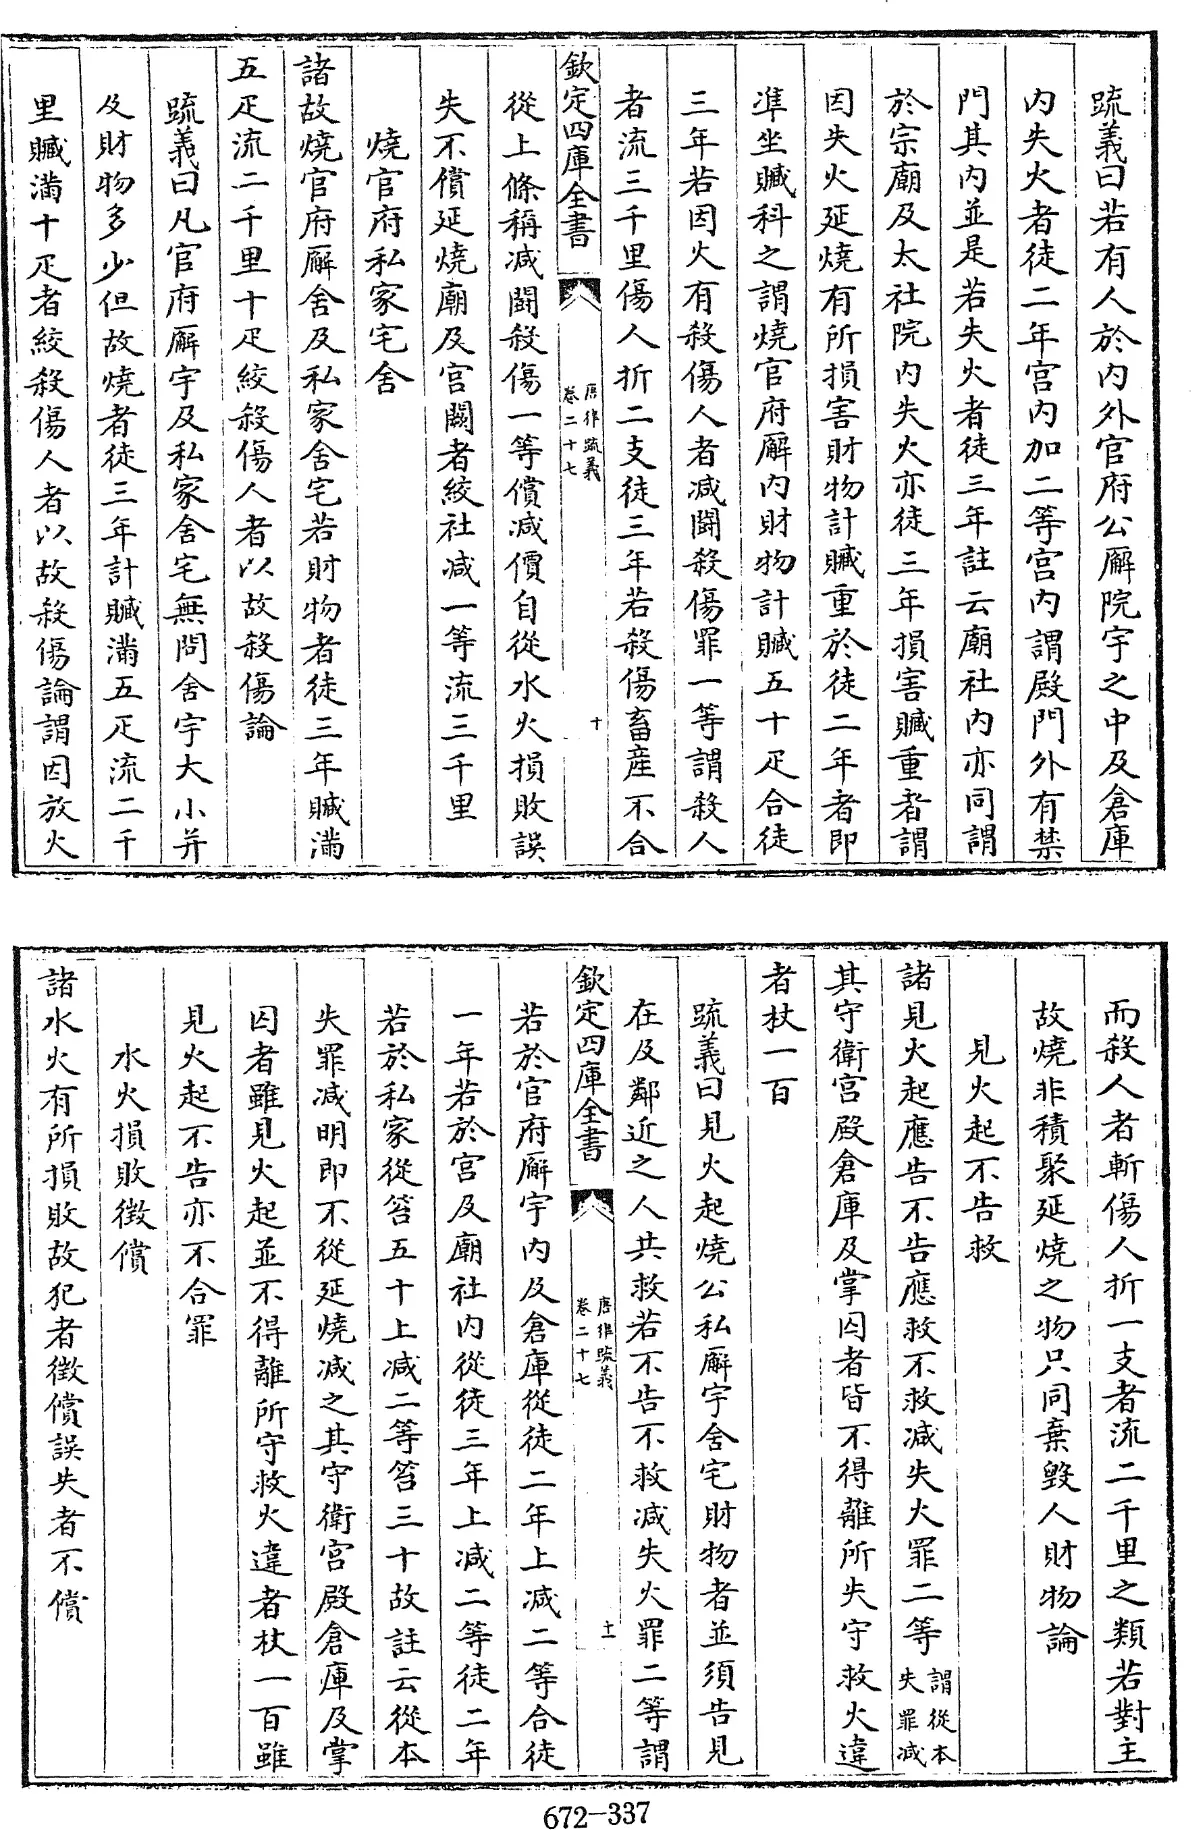 疏義曰若有人於内外官府公廨院宇之中及倉庫
内失火者徒二年宫内加二等宫内謂殿門外有禁
門其内並是若失火者徒三年註云廟社内亦同謂
於宗廟及太社院内失火亦徒三年損害贓重者謂
因失火延燒有所損害財物計贓重於徒二年者即
準坐贓科之謂燒官府廨内財物計贓五十疋合徒
三年若因火有殺傷人者減鬬殺傷罪一等謂殺人
者流三千里傷人折二支徒三年若殺傷畜産不合
欽定四庫全書
唐律疏義
卷二十七
十
從上條稱減鬬殺傷一等償減價自從水火損敗誤
失不償延燒廟及宫闕者絞社減一等流三千里
燒官府私家宅舍
諸故燒官府廨舍及私家舍宅若財物者徒三年贓滿
五疋流二千里十疋絞殺傷人者以故殺傷論
疏義曰凡官府廨宇及私家舍宅無問舍宇大小并
及財物多少但故燒者徒三年計贓滿五疋流二千
里贓滿十疋者絞殺傷人者以故殺傷論謂因放火
而殺人者斬傷人折一支者流二千里之類若對主
故燒非積聚延燒之物只同棄毁人財物論
見火起不告救
諸見火起應告不告應救不救減失火罪二等謂從本失罪減
其守衛宫殿倉庫及掌囚者皆不得離所失守救火違
者杖一百
疏義曰見火起燒公私廨宇舍宅財物者並須告見
在及鄰近之人共救若不告不救減失火罪二等謂
欽定四庫全書
唐律疏義
卷二十七
十一
若於官府廨宇内及倉庫從徒二年上減二等合徒
一年若於宫及廟社内從徒三年上減二等徒二年
若於私家從笞五十上減二等笞三十故註云從本
失罪減明即不從延燒減之其守衛宫殿倉庫及掌
囚者雖見火起並不得離所守救火違者杖一百雖
見火起不告亦不合罪
水火損敗徵償
諸水火有所損敗故犯者徵償誤失者不償
672-337